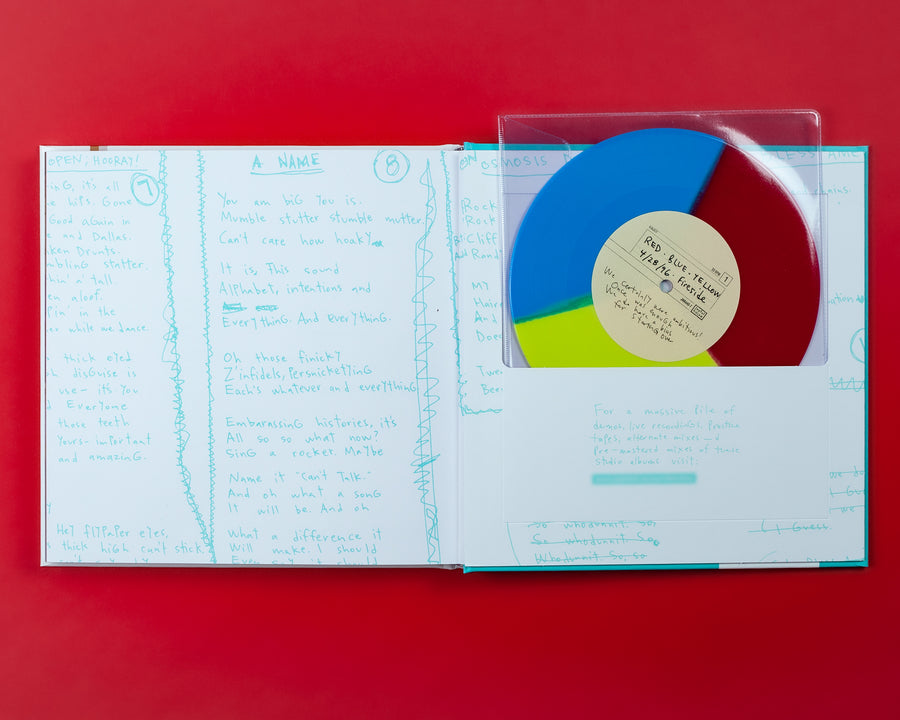 OPEN, HOORAY!
7
ing, it's all
e lips. Gone
Good again in
e and Dallas.
ken Drunts.
mbling statter.
hin' n' tall.
en aloof.
Pin' in the
er while we dance.
thick eyed
h disguise is
use - it's you
d Everyone
those teeth
yours - important
and amazing.
Hey flypaper eyes,
thick high can't stick.
A NAME
8
You am big you is.
Mumble stutter stumble mutter.
Can't care how hoaky
It is, This sound
Alphabet, intentions and
Everything. And everything.
Oh those finicky
Z'infidels, Persnicketying
Each's whatever and everything
Embarassing histories, it's
All so so what now?
Sing a rocker. Maybe
Name it "Can't Talk."
And oh what a song
It will be. And oh
What a difference it
Will make. I should
OSMOSIS
Rock
Rock
Cliff
And Rand
My
Hair
An
Doe
Twe
Bee
chains.
RED · BLUE · YELLOW
4/28/96 · Fireside
1
We certainly were ambitious!
Once was enough
We do have a blue
for starting over
For a massive pile of
demos, live recordings, practice
tapes, alternate mixes and
Pre-mastered mixes of these
studio albums visit:
So whodunnit So,
So whodunnit So,
Whodunnit So, so
I Guess.